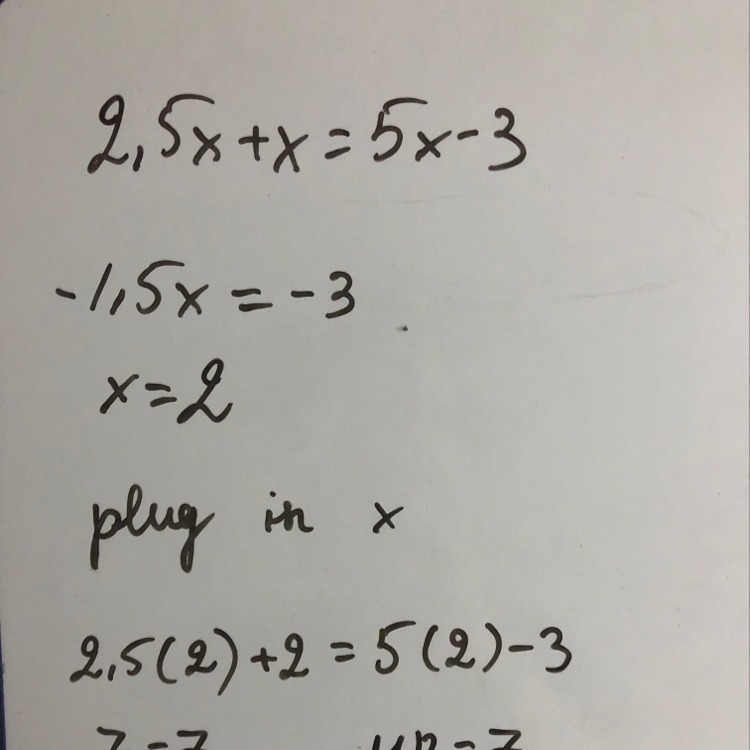 2,5x+x=5x-3
-1,5x=-3
x=2
plug in x
2,5(2)+2=5(2)-3
7=7